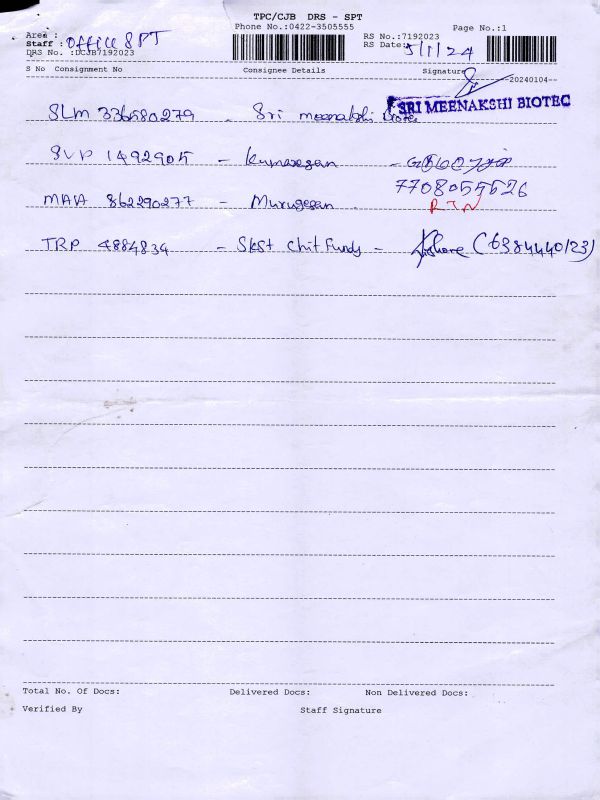 TPC/CJB DRS - SPT
Phone No.:0422-3505555
Page No.:1
Area :
Staff : Office SPT
DRS No. :DCJB7192023
RS No.:7192023
RS Date: 5/1/24
S No Consignment No Consignee Details Signature
20240104
SLM 336580279 - Sri meenakshi Biotec
SRI MEENAKSHI BIOTEC
SVP 1492905 - Kumaresan -
7708055526
MAA 862290277 - Murugesan RTN
TRP 4884834 - SKST Chit Funds - Kishore (6384440123)
Total No. Of Docs: Delivered Docs: Non Delivered Docs:
Verified By Staff Signature